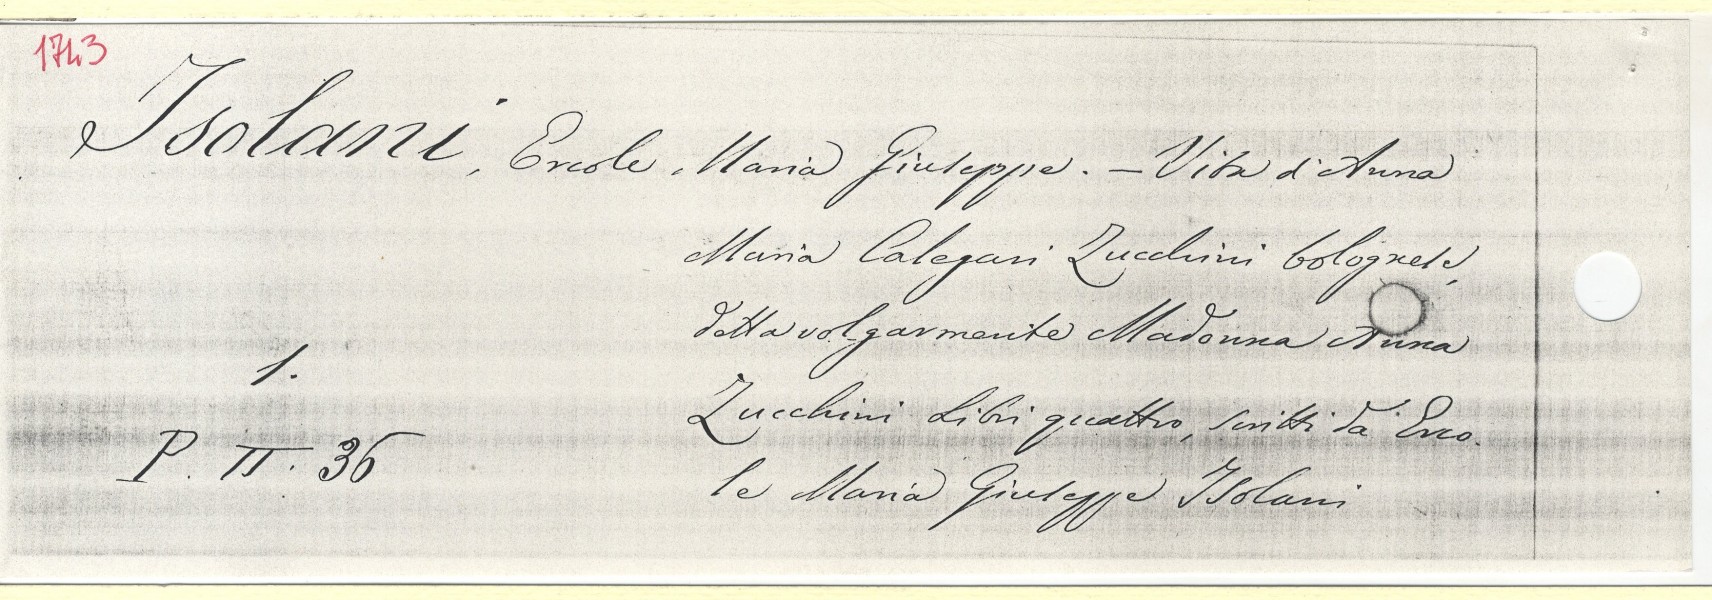 1743
Isolani, Ercole Maria Giuseppe. – Vita d'Anna
Maria Calegari Zucchini bolognese
detta volgarmente Madonna Anna
1.
Zucchini Libri quattro scritti da Erco
P. II. 36
le Maria Giuseppe Isolani